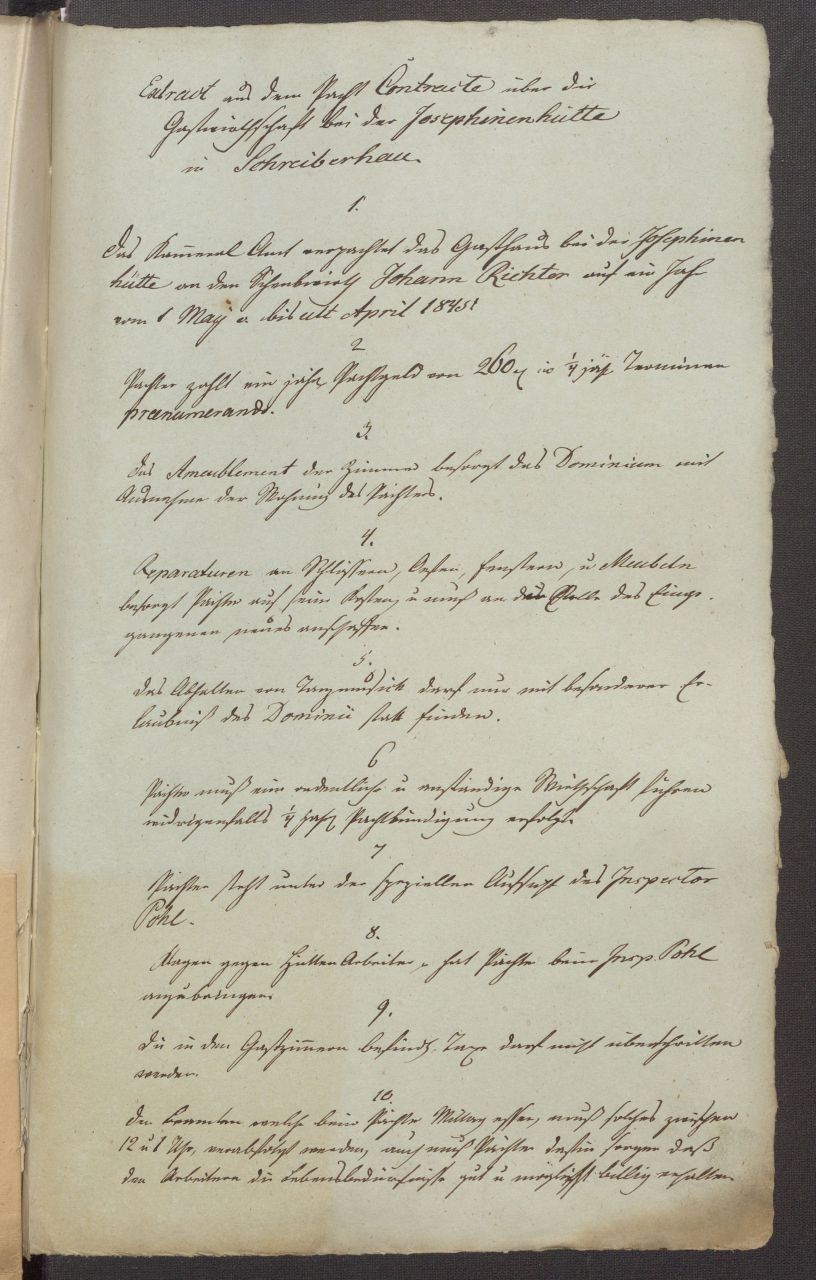 Extract aus dem Pacht Contracte über die
Gastwirthschaft bei der Josephinenhütte
in Schreiberhau.
1.
Das Kameral Amt verpachtet das Gasthaus bei der Josephinen
hütte an den Schenkwirth Johann Richter auf ein Jahr
vom 1 May c bis ult April 1845.
2
Pächter zahlt ein jährl Pachtgeld von 260 in ¼ jähr Terminen
praenumerando.
3.
Das Ameublement der Zimmer besorgt das Dominium mit
Ausnahme der Wohnung des Pächters.
4.
Reparaturen an Schlössern, Oefen, Fenstern, u Meubeln
besorgt Pächter auf seine Kosten, u muß an die Stelle des Einge-
gangenen neues anschaffen.
5.
Das Abhalten von Tanzmusick darf nur mit besonderer Er-
laubniß des Dominii statt finden.
6
Pächter muß eine ordentliche u anständige Wirthschaft führen
widrigenfalls ¼ jähr Pachtkündigung erfolgt.
7
Pächter steht unter der speziellen Aufsicht des Inspector
Pohl.
8.
Klagen gegen Hütten Arbeiter, hat Pächter beim Insp. Pohl
anzubringen.
9.
Die in den Gastzimmern befindl. Taxe darf nicht überschritten
werden.
10.
Den Beamten welche beim Pächter Mittag essen, muß solches zwischen
12 u 1 Uhr, verabfolgt werden, auch muß Pächter dafür sorgen daß
den Arbeitern die Lebensbedürfnisse gut u möglichst billig erhalten